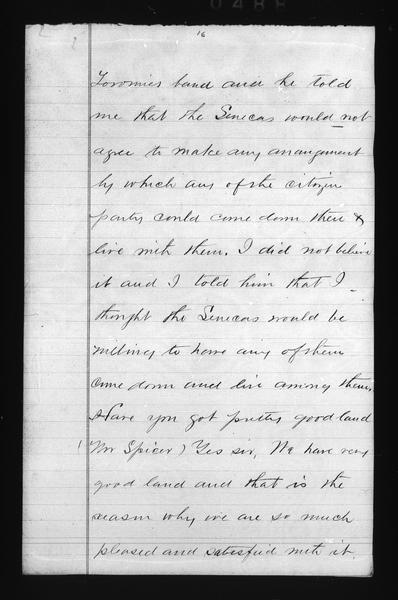 0488
16
band and he told
me that the Senecas would not
agree to make any arrangement
by which any of the citizen
party could come down there &
live with them. I did not believe
it and I told him that I
thought the Senecas would be
willing to have any of them
come down and live among them.
Have you got pretty good land
Mr Spicer) Yes sir, We have very
good land and that is the
reason why we are so much
pleased and satisfied with it.